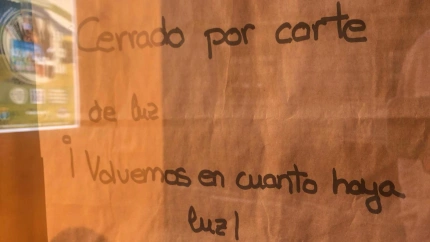 Cerrado por corte
de luz
¡Volvemos en cuanto haya
luz!